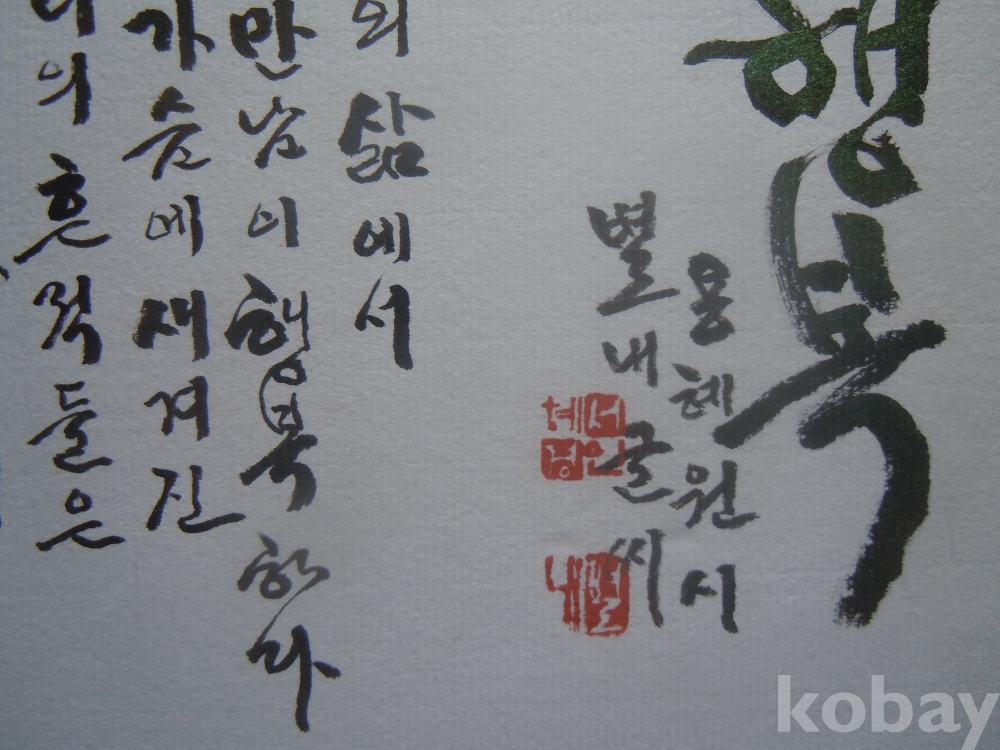 행복
용혜원 시
별내 글씨
의 삶에서
만남이 행복하다
가슴에 새겨진
의 흔적들은
kobay